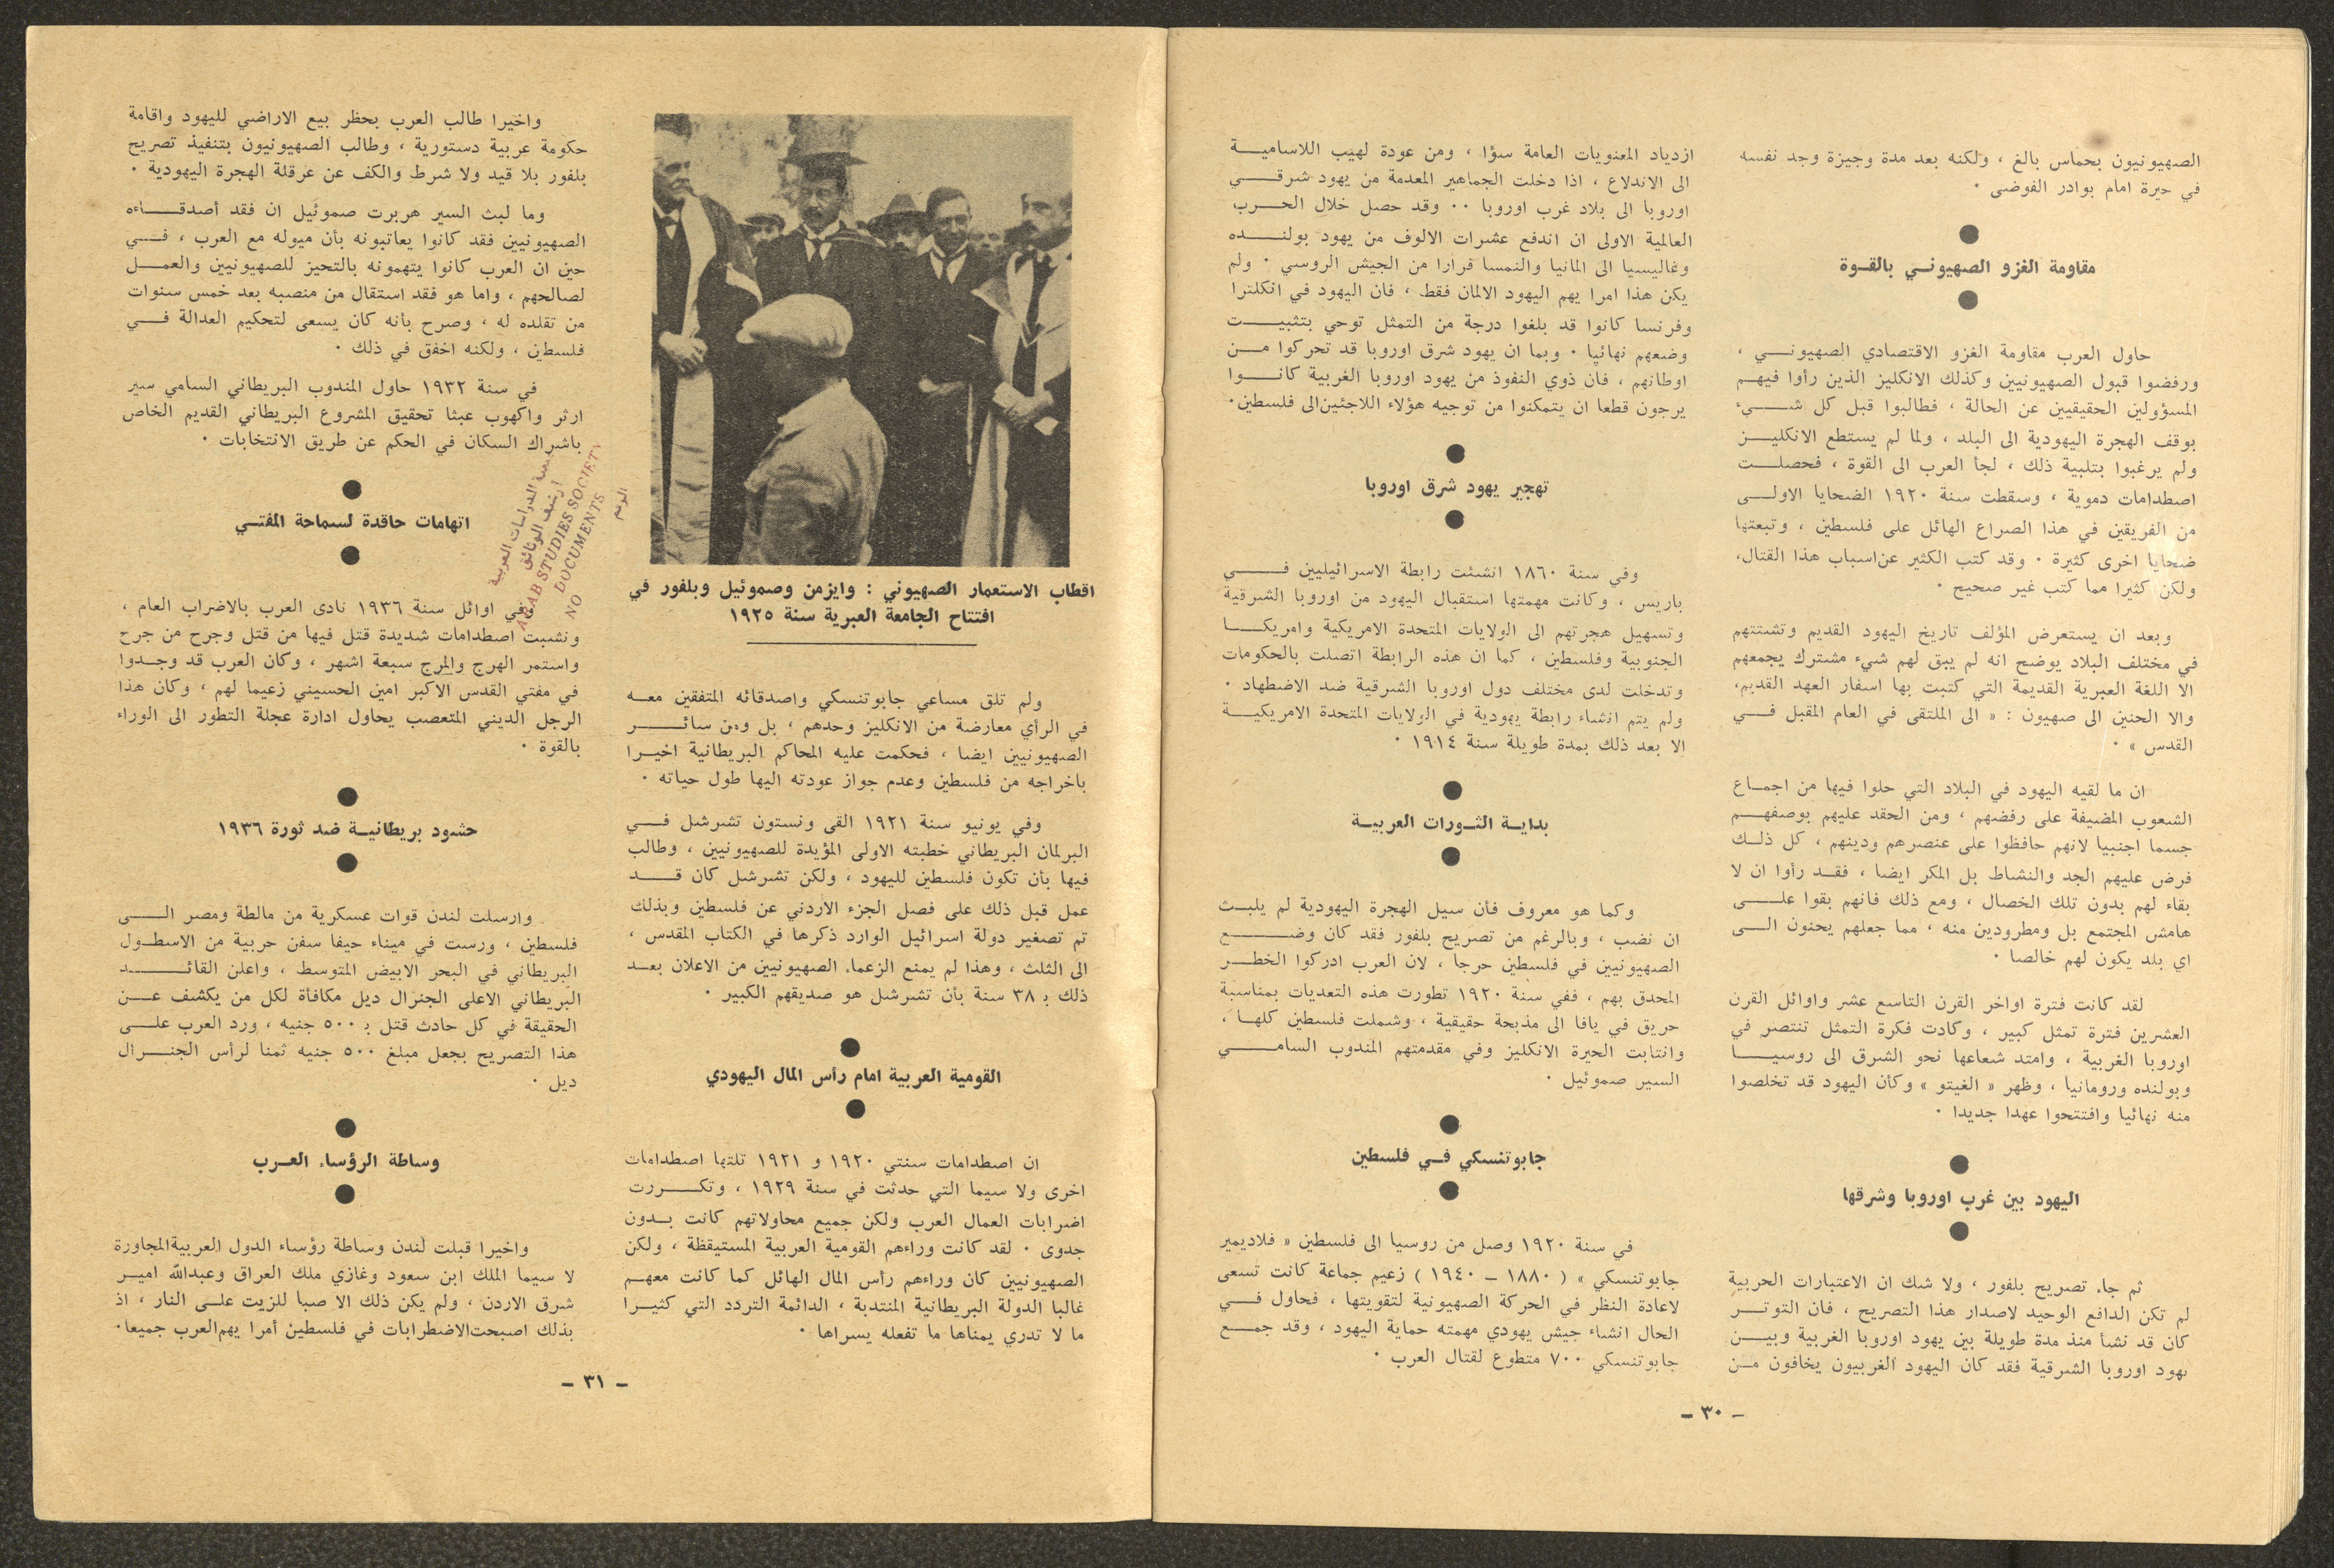 الصهيونيون بحماس بالغ ، ولكنه بعد مدة وجيزة وجد نفسه
في حيرة امام بوادر الفوضى .
مقاومة الغزو الصهيونـي بالقـوة
حاول العرب مقاومة الغزو الاقتصادي الصهيونـــي ،
ورفضوا قبول الصهيونيين وكذلك الانكليز الذين رأوا فيهـم
المسؤولين الحقيقيين عن الحالة ، فطالبوا قبل كل شــيء
بوقف الهجرة اليهودية الى البلد ، ولما لم يستطع الانكليـز
ولم يرغبوا بتلبية ذلك ، لجأ العرب الى القوة ، فحصلـت
اصطدامات دموية ، وسقطت سنة ١٩٢٠ الضحايا الاولــى
من الفريقين في هذا الصراع الهائل على فلسطين ، وتبعتها
ضحايا اخرى كثيرة . وقد كتب الكثير عن اسباب هذا القتال،
ولكن كثيرا مما كتب غير صحيح .
وبعد ان يستعرض المؤلف تاريخ اليهود القديم وتشتتهم
في مختلف البلاد يوضح انه لم يبق لهم شيء مشترك يجمعهم
الا اللغة العبرية القديمة التي كتبت بها اسفار العهد القديم،
والا الحنين الى صهيون : « الى الملتقى في العام المقبل فــي
القدس » .
ان ما لقيه اليهود في البلاد التي حلوا فيها من اجمـاع
الشعوب المضيفة على رفضهم ، ومن الحقد عليهم بوصفهـم
جسما اجنبيا لانهم حافظوا على عنصرهم ودينهم ، كل ذلـك
فرض عليهم الجد والنشاط بل المكر ايضا ، فقـد رأوا ان لا
بقاء لهم بدون تلك الخصال ، ومع ذلك فانهم بقوا علــى
هامش المجتمع بل ومطرودين منه ، مما جعلهم يحنون الــى
اي بلد يكون لهم خالصا .
لقد كانت فترة اواخر القرن التاسع عشر واوائل القرن
العشرين فترة تمثل كبير ، وكادت فكرة التمثل تنتصر في
اوروبا الغربية ، وامتد شعاعها نحو الشرق الى روسيــا
وبولنده ورومانيا ، وظهر « الغيتو » وكأن اليهود قد تخلصوا
منه نهائيا وافتتحوا عهدا جديدا .
اليهود بين غرب اوروبا وشرقها
ثم جاء تصريح بلفور ، ولا شك ان الاعتبارات الحربية
لم تكن الدافع الوحيد لاصدار هذا التصريح ، فان التوتـر
كان قد نشأ منذ مدة طويلة بين يهود اوروبا الغربية وبيـن
يهود اوروبا الشرقية فقد كان اليهود الغربيون يخافون مـن
ازدياد المعنويات العامة سؤا ، ومن عودة لهيب اللاساميـة
الى الاندلاع ، اذا دخلت الجماهير المعدمة من يهود شرقــي
اوروبا الى بلاد غرب اوروبا .. وقد حصل خلال الحــرب
العالمية الاولى ان اندفع عشرات الالوف من يهود بولنــده
وغاليسيا الى المانيا والنمسا فرارا من الجيش الروسي . ولم
يكن هذا امرا يهم اليهود الالمان فقط ، فان اليهود في انكلترا
وفرنسا كانوا قد بلغوا درجة من التمثل توحي بتثبيــت
وضعهم نهائيا . وبما ان يهود شرق اوروبا قد تحركوا مــن
اوطانهم ، فان ذوي النفوذ من يهود اوروبا الغربية كانــوا
يرجون قطعا ان يتمكنوا من توجيه هؤلاء اللاجئين الى فلسطين.
تهجير يهود شرق اوروبا
وفي سنة ١٨٦٠ انشئت رابطة الاسرائيليين فــي
باريس ، وكانت مهمتها استقبال اليهود من اوروبا الشرقية
وتسهيل هجرتهم الى الولايات المتحدة الامريكية وامريكــا
الجنوبية وفلسطين ، كما ان هذه الرابطة اتصلت بالحكومات
وتدخلت لدى مختلف دول اوروبا الشرقية ضد الاضطهاد .
ولم يتم انشاء رابطة يهودية في الولايات المتحدة الامريكيـة
الا بعد ذلك بمدة طويلة سنة ١٩١٤ .
بدايـة الثـورات العربيـة
وكما هو معروف فأن سيل الهجرة اليهودية لم يلبـث
ان نضب ، وبالرغم من تصريح بلفور فقد كان وضــع
الصهيونيين في فلسطين حرجا ، لان العرب ادركوا الخطـر
المحدق بهم ، ففي سنة ١٩٢٠ تطورت هذه التعديات بمناسبة
حريق في يافا الى مذبحة حقيقية ، وشملت فلسطين كلهـا ،
وانتابت الحيرة الانكليز وفي مقدمتهم المندوب السامــي
السير صموئيل .
جابوتنسكي فـي فلسطين
في سنة ١٩٢٠ وصل من روسيا الى فلسطين « فلاديمير
جابوتنسكي » ( ١٨٨٠ ــ ١٩٤٠ ) زعيم جماعة كانت تسعى
لاعادة النظر في الحركة الصهيونية لتقويتها ، فحاول فــي
الحال انشاء جيش يهودي مهمته حماية اليهود ، وقد جمــع
جابوتنسكي ٧٠٠ متطوع لقتال العرب .
ــ ٣٠ ــ
اقطاب الاستعمار الصهيوني : وايزمن وصموئيل وبلفور في
افتتاح الجامعة العبرية سنة ١٩٢٥
ولم تلق مساعي جابوتنسكي واصدقائه المتفقين معـه
في الرأي معارضة من الانكليز وحدهم ، بل ومن سائــر
الصهيونيين ايضا ، فحكمت عليه المحاكم البريطانية اخيـرا
باخراجه من فلسطين وعدم جواز عودته اليها طول حياته .
وفي يونيو سنة ١٩٢١ القى ونستون تشرشل فــي
البرلمان البريطاني خطبته الاولى المؤيدة للصهيونيين ، وطالب
فيها بأن تكون فلسطين لليهود ، ولكن تشرشل كان قــد
عمل قبل ذلك على فصل الجزء الاردني عن فلسطين وبذلك
تم تصغير دولة اسرائيل الوارد ذكرها في الكتاب المقدس ،
الى الثلث ، وهذا لم يمنع الزعماء الصهيونيين من الاعلان بعـد
ذلك بـ ٣٨ سنة بأن تشرشل هو صديقهم الكبير .
القومية العربية امام رأس المال اليهودي
ان اصطدامات سنتي ١٩٢٠ و ١٩٢١ تلتها اصطدامات
اخرى ولا سيما التي حدثت في سنة ١٩٢٩ ، وتكـــررت
اضرابات العمال العرب ولكن جميع محاولاتهم كانت بـدون
جدوى . لقد كانت وراءهم القومية العربية المستيقظة ، ولكن
الصهيونيين كان وراءهم رأس المال الهائل كما كانت معهـم
غالبا الدولة البريطانية المنتدبة ، الدائمة التردد التي كثيـرا
ما لا تدري يمناها ما تفعله يسراها .
واخيرا طالب العرب بحظر بيع الاراضي لليهود واقامة
حكومة عربية دستورية ، وطالب الصهيونيون بتنفيذ تصريح
بلفور بلا قيد ولا شرط والكف عن عرقلة الهجرة اليهودية .
وما لبث السير هربرت صموئيل ان فقد أصدقــاءه
الصهيونيين فقد كانوا يعاتبونه بأن ميوله مع العرب ، فــي
حين ان العرب كانوا يتهمونه بالتحيز للصهيونيين والعمــل
لصالحهم ، واما هو فقد استقال من منصبه بعد خمس سنوات
من تقلده له ، وصرح بأنه كان يسعى لتحكيم العدالة فــي
فلسطين ، ولكنه اخفق في ذلك .
في سنة ١٩٣٢ حاول المندوب البريطاني السامي سير
ارثر واكهوب عبثا تحقيق المشروع البريطاني القديم الخاص
باشراك السكان في الحكم عن طريق الانتخابات .
جمعية الدراسات العربية
ارشيف الوثائق
ARAB STUDIES SOCIETY
DOCUMENTS
NO
الرقم
اتهامات حاقدة لسماحة المفتـي
في اوائل سنة ١٩٣٦ نادى العرب بالاضراب العام ،
ونشبت اصطدامات شديدة قتل فيها من قتل وجرح من جرح
واستمر الهرج والمرج سبعة اشهر ، وكان العرب قد وجـدوا
في مفتي القدس الاكبر امين الحسيني زعيما لهم ، وكان هذا
الرجل الديني المتعصب يحاول ادارة عجلة التطور الى الوراء
بالقوة .
حشود بريطانيـة ضد ثورة ١٩٣٦
وارسلت لندن قوات عسكرية من مالطة ومصر الــى
فلسطين ، ورست في ميناء حيفا سفن حربية من الاسطـول
البريطاني في البحر الابيض المتوسط ، واعلن القائـــد
البريطاني الاعلى الجنرال ديل مكافأة لكل من يكشف عــن
الحقيقة في كل حادث قتل بـ ٥٠٠ جنيه ، ورد العرب علــى
هذا التصريح بجعل مبلغ ٥٠٠ جنيه ثمنا لرأس الجنــرال
ديل .
وساطة الرؤساء العـرب
واخيرا قبلت لندن وساطة رؤساء الدول العربية المجاورة
لا سيما الملك ابن سعود وغازي ملك العراق وعبدالله اميـر
شرق الاردن ، ولم يكن ذلك الا صبا للزيت علـى النار ، اذ
بذلك اصبحت الاضطرابات في فلسطين أمرا يهم العرب جميعا.
ــ ٣١ ــ